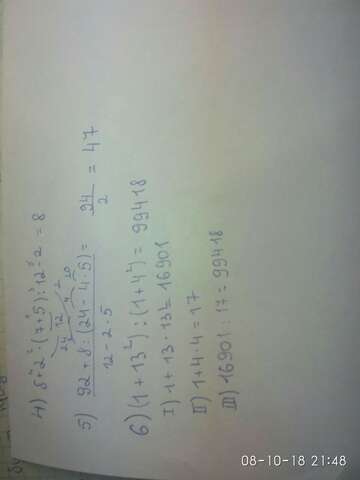 4) 8+2·(7+5):12-2=8
24 12 2
5) 92+8:(24-4·5)= 94 = 47
4 20
12-2·5 2
6) (1+13²):(1+4²)=99418
I) 1+13·13²=16901
II) 1+4·4=17
III) 16901:17=99418
08-10-18 21:48